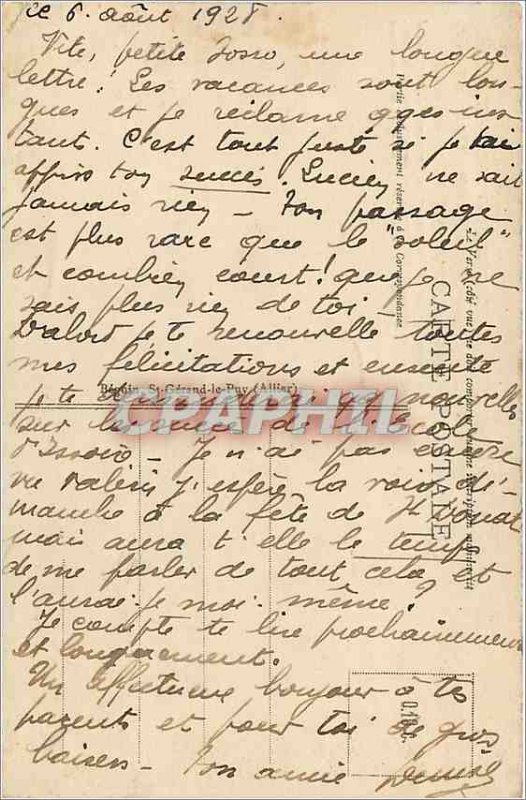 le 6 août 1928.
Vite, petite Zozo, une longue
lettre! Les vacances sont lon-
gues et je réclame qques ins-
tant. C'est tout juste si je t'ai
appris ton succès. Lucien ne sait
jamais rien - Ton passage
est plus rare que le "soleil"
et combien court! que je ne
sais plus rien de toi!
D'abord je te renouvelle toutes
mes félicitations et ensuite
je te qq nouvelles
sur de l'école
d'Issoire - Je n'ai pas encore
vu Valérie j'espère la voir di-
manche à la fête de St
mais aura t'elle le temps
de me parler de tout cela et
l'aurai-je moi-même?
Je compte te lire prochainement
et longuement.
Un affectueux bonjour à tes
parents et pour toi de gros
baisers - Ton amie Denise
Partie exclusivement réservée à la Correspondance
CARTE POSTALE
Béguin, St-Gérand-le-Puy (Allier)
CPAPHIL.COM